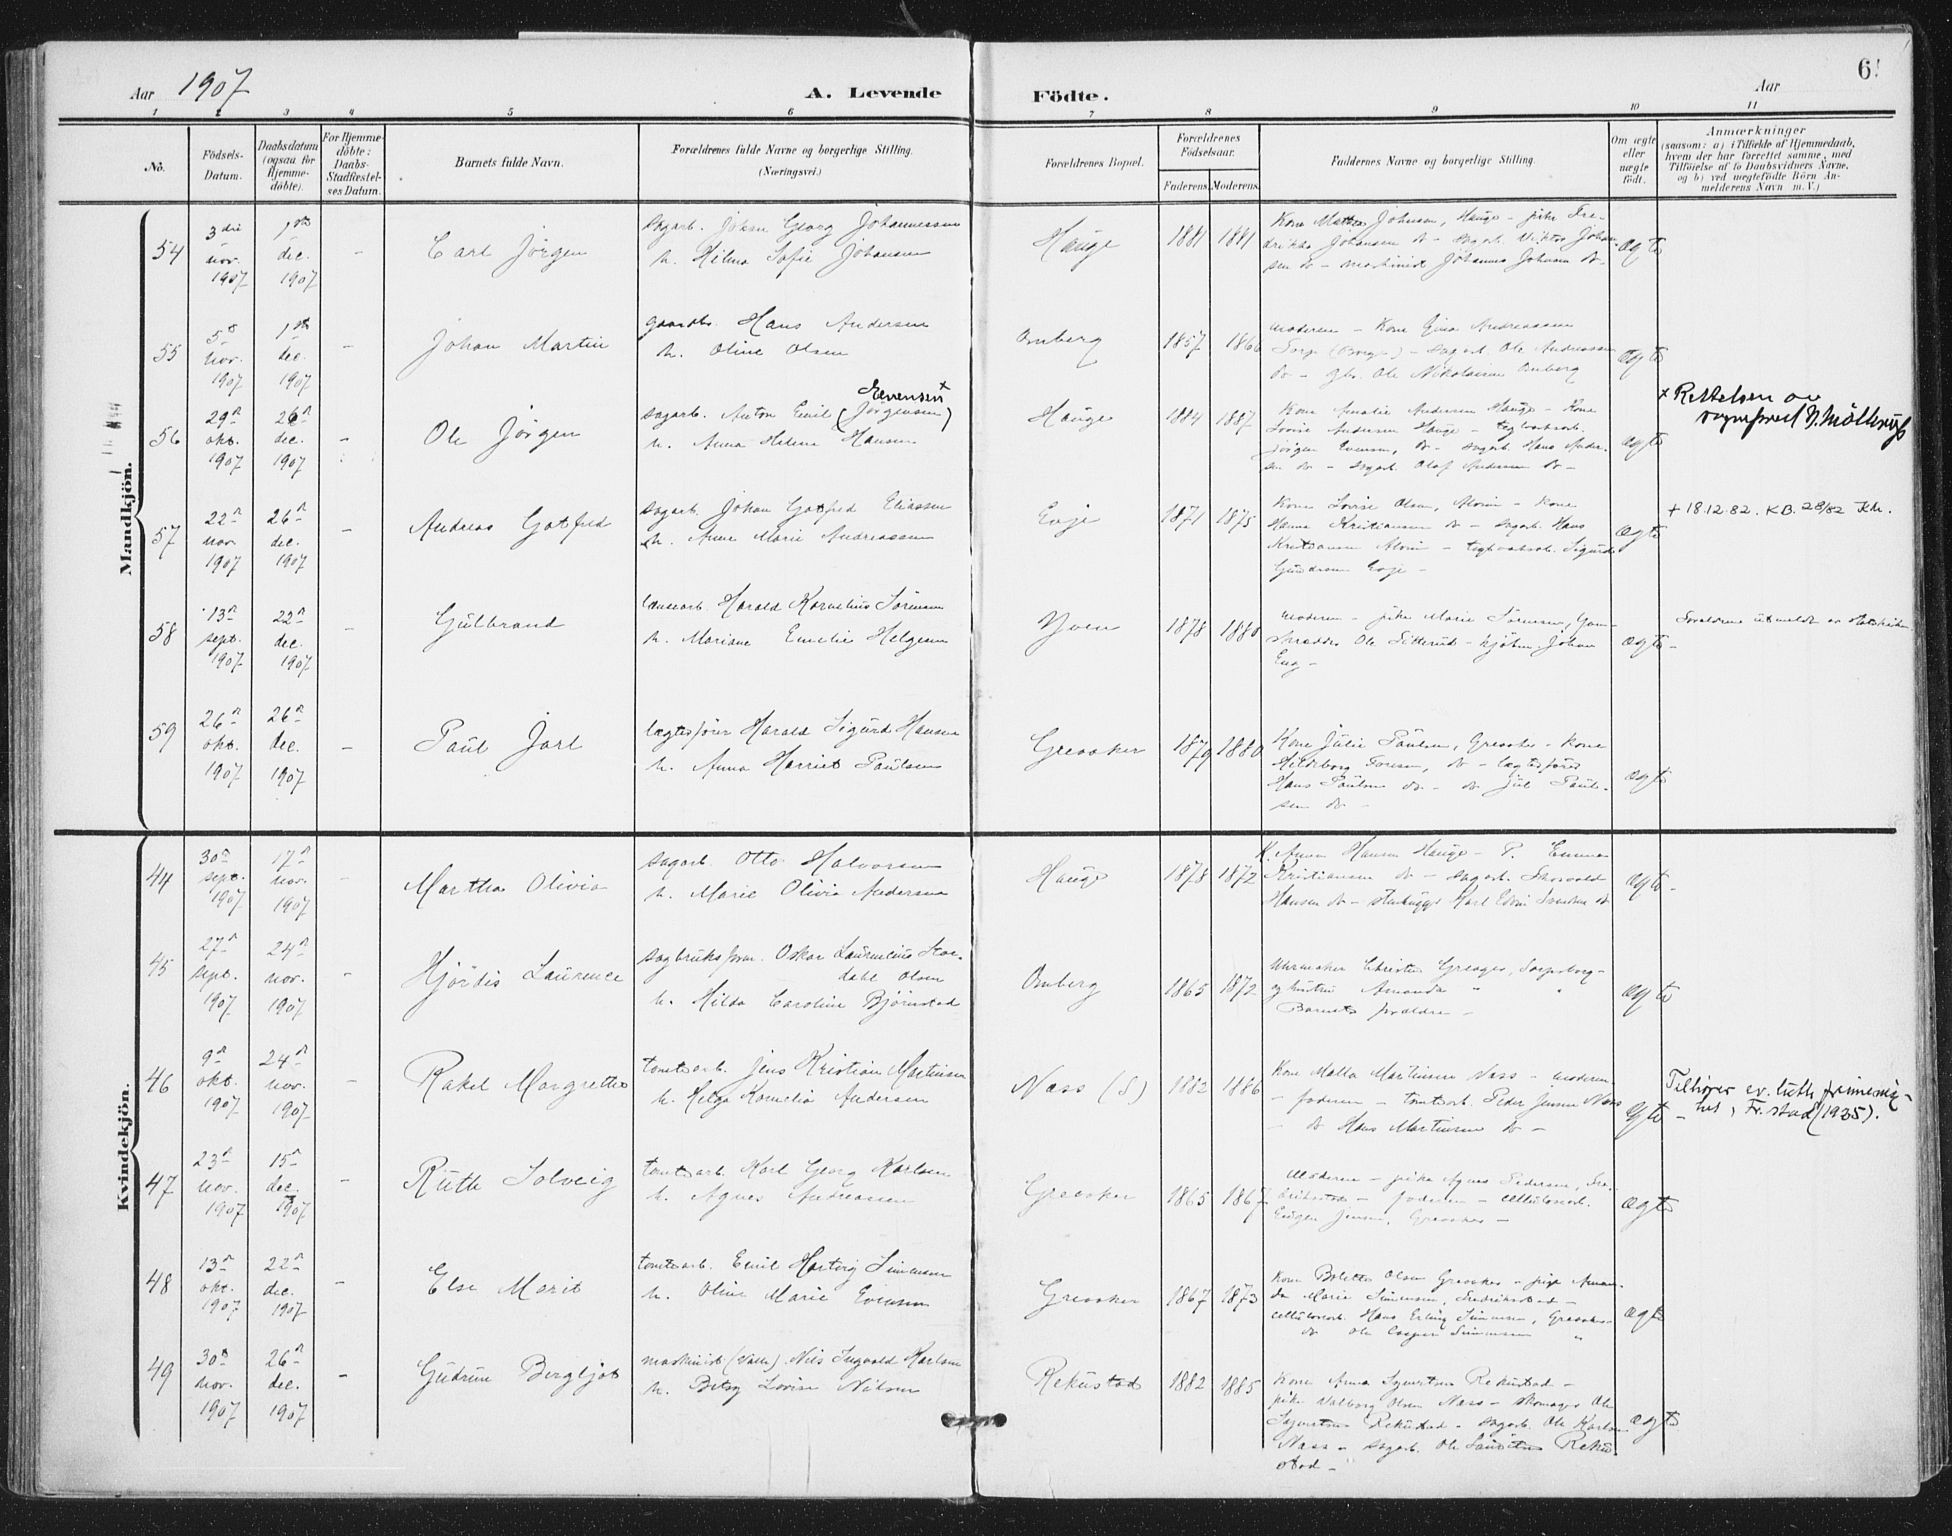 Aar 1907
A. Levende Födte.
Aar
6
1 2 3 4 5 6 7 8 9 10 11
No.
Födsels-
Datum.
Daabsdatum
(ogsaa for
Hjemme-
döbte).
For Hjemme-
döbte:
Daabs-
Stadfæstel-
ses Datum.
Barnets fulde Navn.
Forældrenes fulde Navne og borgerlige Stilling.
(Næringsvei.)
Forældrenes Bopæl.
Forældrenes
Födselsaar.
Faderens. Moderens.
Faddernes Navne og borgerlige Stilling.
Om ægte
eller
uægte
født.
Anmærkninger
(saasom: a) i Tilfælde af Hjemmedaab,
hvem der har forrettet samme, med
Tilföielse af to Daabsvidners Navne,
og b) ved uægtefödte Börn An-
melderens Navn m. V.)
Mandkjön.
54
3die nov. 1907
1ste dec. 1907
–
Carl Jörgen
sagarb. Johan Georg Johannessen
h. Hilma Sofie Johansen
Hauge
1881 1881
Kone Johnsen, Hauge – pike Fre-
drikke Johansen do – sagarb. Viktor Johan-
sen do – maskinist Johannes Johnsen do –
ægte
55
5te nov. 1907
1ste dec. 1907
–
Johan Martin
gaardbr. Hans Andersen
h. Oline Olsen
Omberg
1857 1866
moderen – Kone Gina Andreassen
Torp (Borge) – sagarb. Ole Andreassen
do – gbr. Ole Nikolaisen Omberg
ægte
56
29de okt. 1907
26de dec. 1907
–
Ole Jörgen
Evensen x
sagarb. Anton Emil (Jörgensen)
h. Anna Helene Hansen
Hauge
1884 1887
Kone Amalie Andersen Hauge – Kone
Lovise Andersen Hauge – teglverksarb.
Jörgen Evensen, do – sagarb. Hans Ander-
sen do – sagarb. Olaf Andersen do –
ægte
x Rettelsen av
sogneprest N. Mölkrug
57
22de nov. 1907
26de dec. 1907
–
Andreas Gotfred
sagarb. Johan Gotfred Eliassen
h. Anne Marie Andreassen
Evje
1871 1875
Kone Lovise Olsen, Alvim – Kone
Hanna Kristiansen do – sagarb. Hans
Kristiansen Alvim – teglverksarb. Sigurd
Gundersen Evje –
ægte
+ 18.12.82. KB. 28/82 Kh.
58
13de sept. 1907
22de dec. 1907
–
Gulbrand
Harald Kornelius Sörensen
h. Mariane Emelie Helgesen
Yven
1878 1880
moderen – pike Marie Sörensen,
skrædder Ole Sitterud – kjöbm. Johan
Eng –
ægte
Foreldrene utmeldt av Statskirken
59
26de okt. 1907
26de dec. 1907
–
Paul Jarl
lægtesförer Harald Sigurd Hansen
h. Anna Harriet Paulsen
Greaaker
1879 1880
Kone Julie Paulsen, Greaaker – Kone
Hildeborg Toresen, do – lægtesförer
Hans Paulsen do – do Jul Paul-
sen do –
ægte
Kvindekjön.
44
30te sept. 1907
17de nov. 1907
–
Martha Olivia
sagarb. Otto Halvorsen
h. Marie Olivia Andersen
Hauge
1878 1872
K. Anna Hansen Hauge – P. Emma
Kristiansen do – sagarb. Thorvald
Hansen do – stenhugger Karl Edvin do
ægte
45
27de sept. 1907
24de nov. 1907
–
Hjördis Laurence
sagbruksform. Oskar Laurentius Sto-
dahl Olsen
h. Hilda Caroline Björnstad
Omberg
1865 1872
Uhrmaker Christen Greager, Sarpsborg –
og hustru Amanda " "
Barnets forældre –
ægte
46
9de okt. 1907
24de nov. 1907
–
Rakel Margrethe
tomtearb. Jens Kristian Martinsen
h. Helga Kornelia Andersen
Næss (S)
1882 1886
Kone Malla Martinsen Næss – moderen
– faderen – tomtearb. Peder Jensen Næss
– do Hans Martinsen do –
ægte
Tilhörer ev. luth. frimenig-
het, Fr.stad (1935).
47
23de nov. 1907
15de dec. 1907
–
Ruth Solveig
tomtearb. Karl Georg Karlsen
h. Agnes Andreassen
Greaaker
1865 1867
Moderen – pike Agnes Pedersen, Fre-
drikstad – faderen – cellulosearb.
Eugen Jensen, Greaaker –
ægte
48
13de okt. 1907
22de dec. 1907
–
Else Marit
tomtearb. Emil Hartvig Simensen
h. Oline Marie Evensen
Greaaker
1867 1873
Kone Bolette Olsen Greaaker – pige Aman-
da Marie Simensen, Fredrikstad –
cellulosearb. Hans Erling Simensen, Greaaker –
do Ole Casper Simensen "
ægte
49
30te nov. 1907
26de dec. 1907
–
Gudrun Bergljot
maskinist (Valle) Nils Ingvald Karlsen
h. Betsy Lovise Nilsen
Rekustad
1882 1885
Kone Anna Syvertsen Rekustad –
pike Valborg Olsen Næss – skomager Ole
Syvertsen Rekustad – sagarb. Ole Karlsen
Næss – sagarb. Ole Rekustad –
ægte